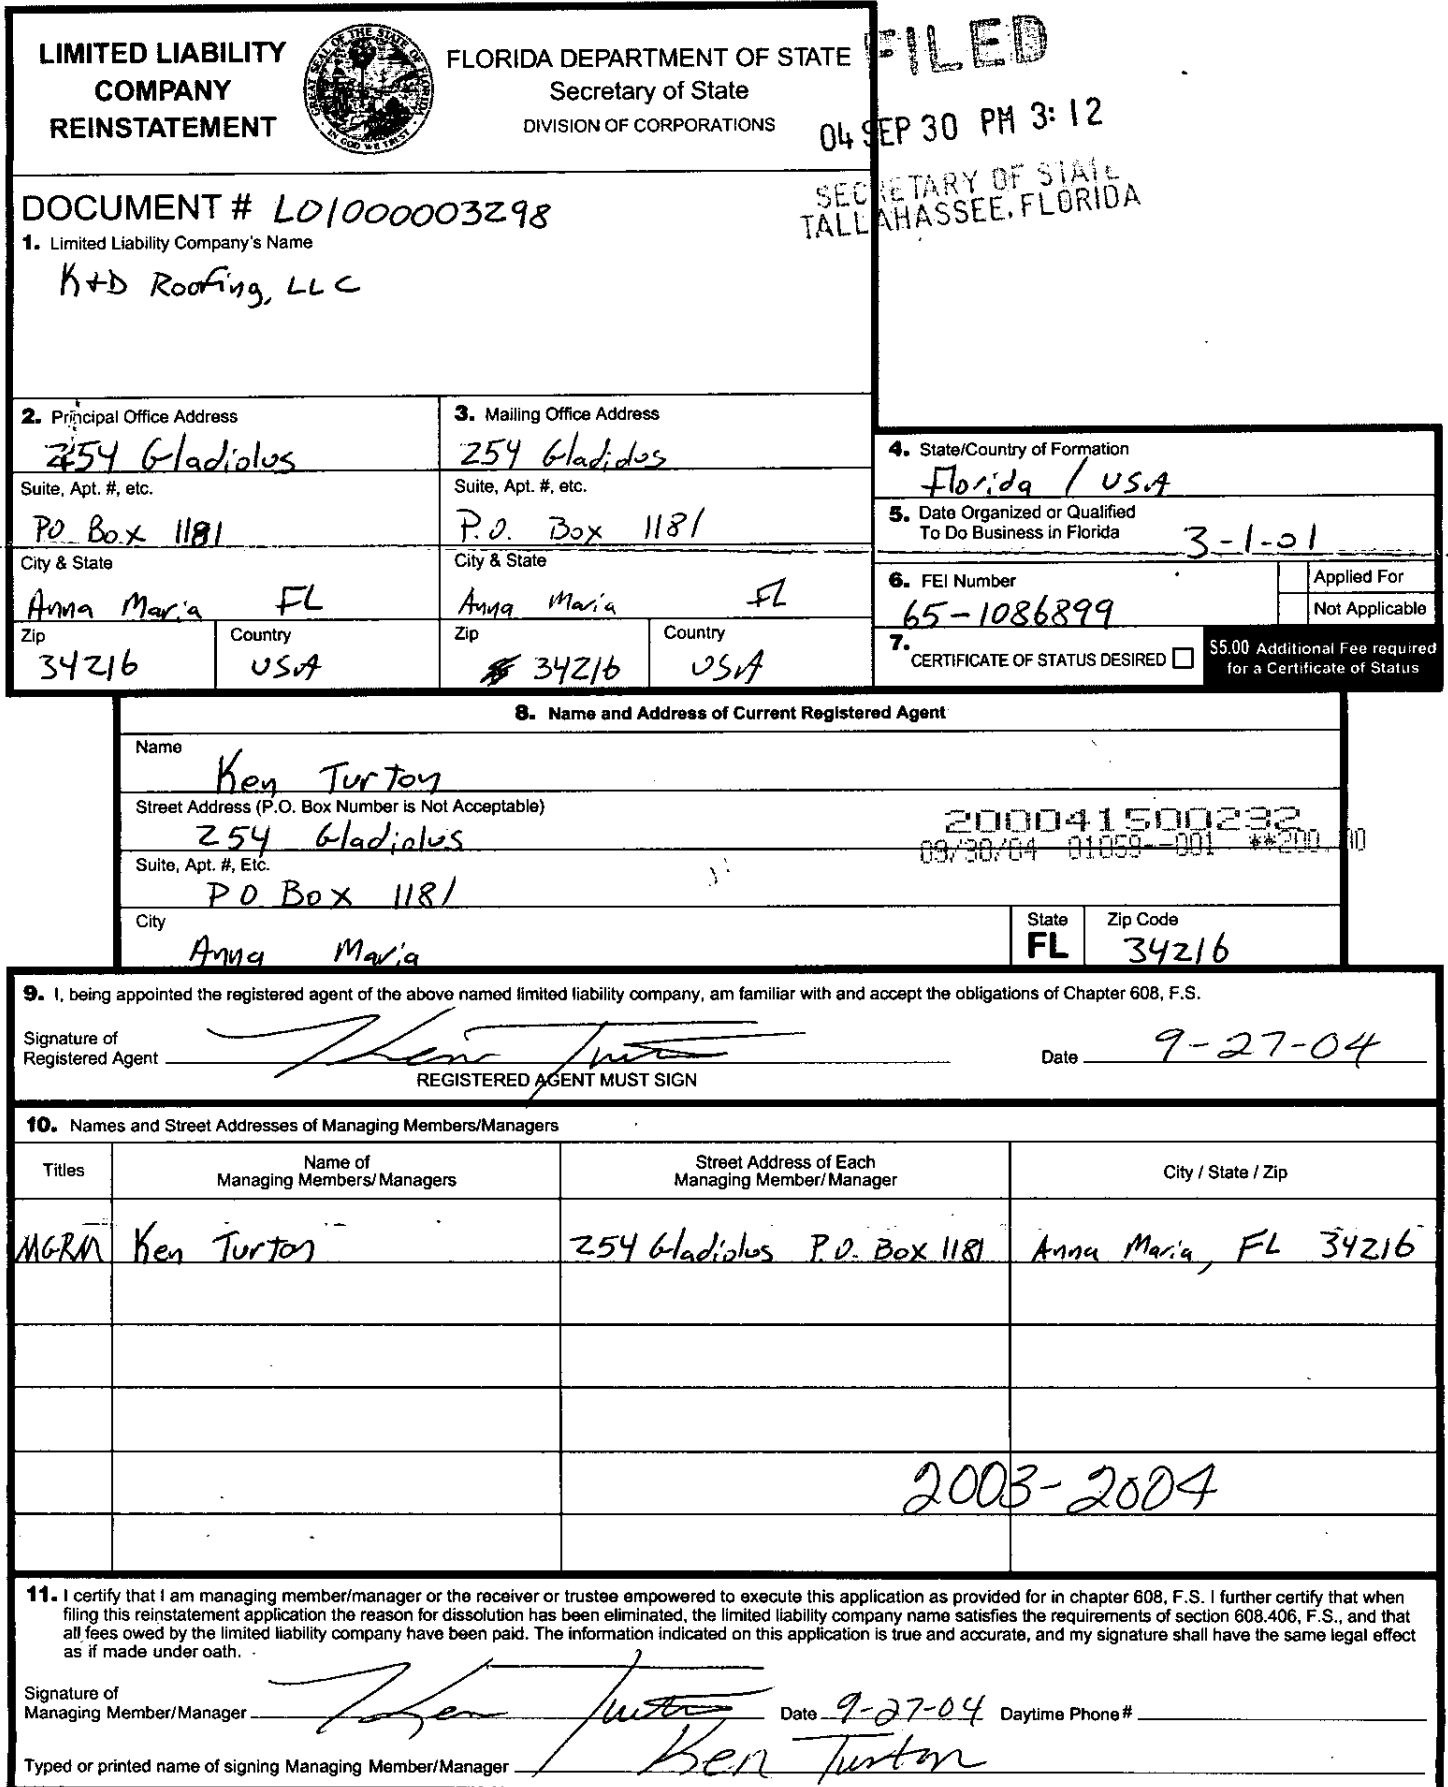 LIMITED LIABILITY
COMPANY
REINSTATEMENT
GREAT SEAL OF THE STATE OF FLORIDA
IN GOD WE TRUST
FLORIDA DEPARTMENT OF STATE
Secretary of State
DIVISION OF CORPORATIONS
FILED
04 SEP 30 PM 3:12
SECRETARY OF STATE
TALLAHASSEE, FLORIDA
DOCUMENT # L01000003298
1. Limited Liability Company's Name
K+D Roofing, LLC
2. Principal Office Address
254 Gladiolus
Suite, Apt. #, etc.
PO Box 1181
City & State
Anna Maria FL
Zip
34216
Country
USA
3. Mailing Office Address
254 Gladiolus
Suite, Apt. #, etc.
P.O. Box 1181
City & State
Anna Maria FL
Zip
34216
Country
USA
4. State/Country of Formation
Florida / USA
5. Date Organized or Qualified
To Do Business in Florida 3-1-01
6. FEI Number
65-1086899
Applied For
Not Applicable
7. CERTIFICATE OF STATUS DESIRED
$5.00 Additional Fee required
for a Certificate of Status
8. Name and Address of Current Registered Agent
Name
Ken Turton
Street Address (P.O. Box Number is Not Acceptable)
254 Gladiolus
200041500232
09/30/04 01059--001 **200.00
Suite, Apt. #, Etc.
PO Box 1181
City
Anna Maria
State
FL
Zip Code
34216
9. I, being appointed the registered agent of the above named limited liability company, am familiar with and accept the obligations of Chapter 608, F.S.
Signature of
Registered Agent Ken Turton Date 9-27-04
REGISTERED AGENT MUST SIGN
10. Names and Street Addresses of Managing Members/Managers
Titles
Name of
Managing Members/Managers
Street Address of Each
Managing Member/Manager
City / State / Zip
MGRM Ken Turton 254 Gladiolus P.O. Box 1181 Anna Maria, FL 34216
2003-2004
11. I certify that I am managing member/manager or the receiver or trustee empowered to execute this application as provided for in chapter 608, F.S. I further certify that when
filing this reinstatement application the reason for dissolution has been eliminated, the limited liability company name satisfies the requirements of section 608.406, F.S., and that
all fees owed by the limited liability company have been paid. The information indicated on this application is true and accurate, and my signature shall have the same legal effect
as if made under oath.
Signature of
Managing Member/Manager Ken Turton Date 9-27-04 Daytime Phone #
Typed or printed name of signing Managing Member/Manager Ken Turton